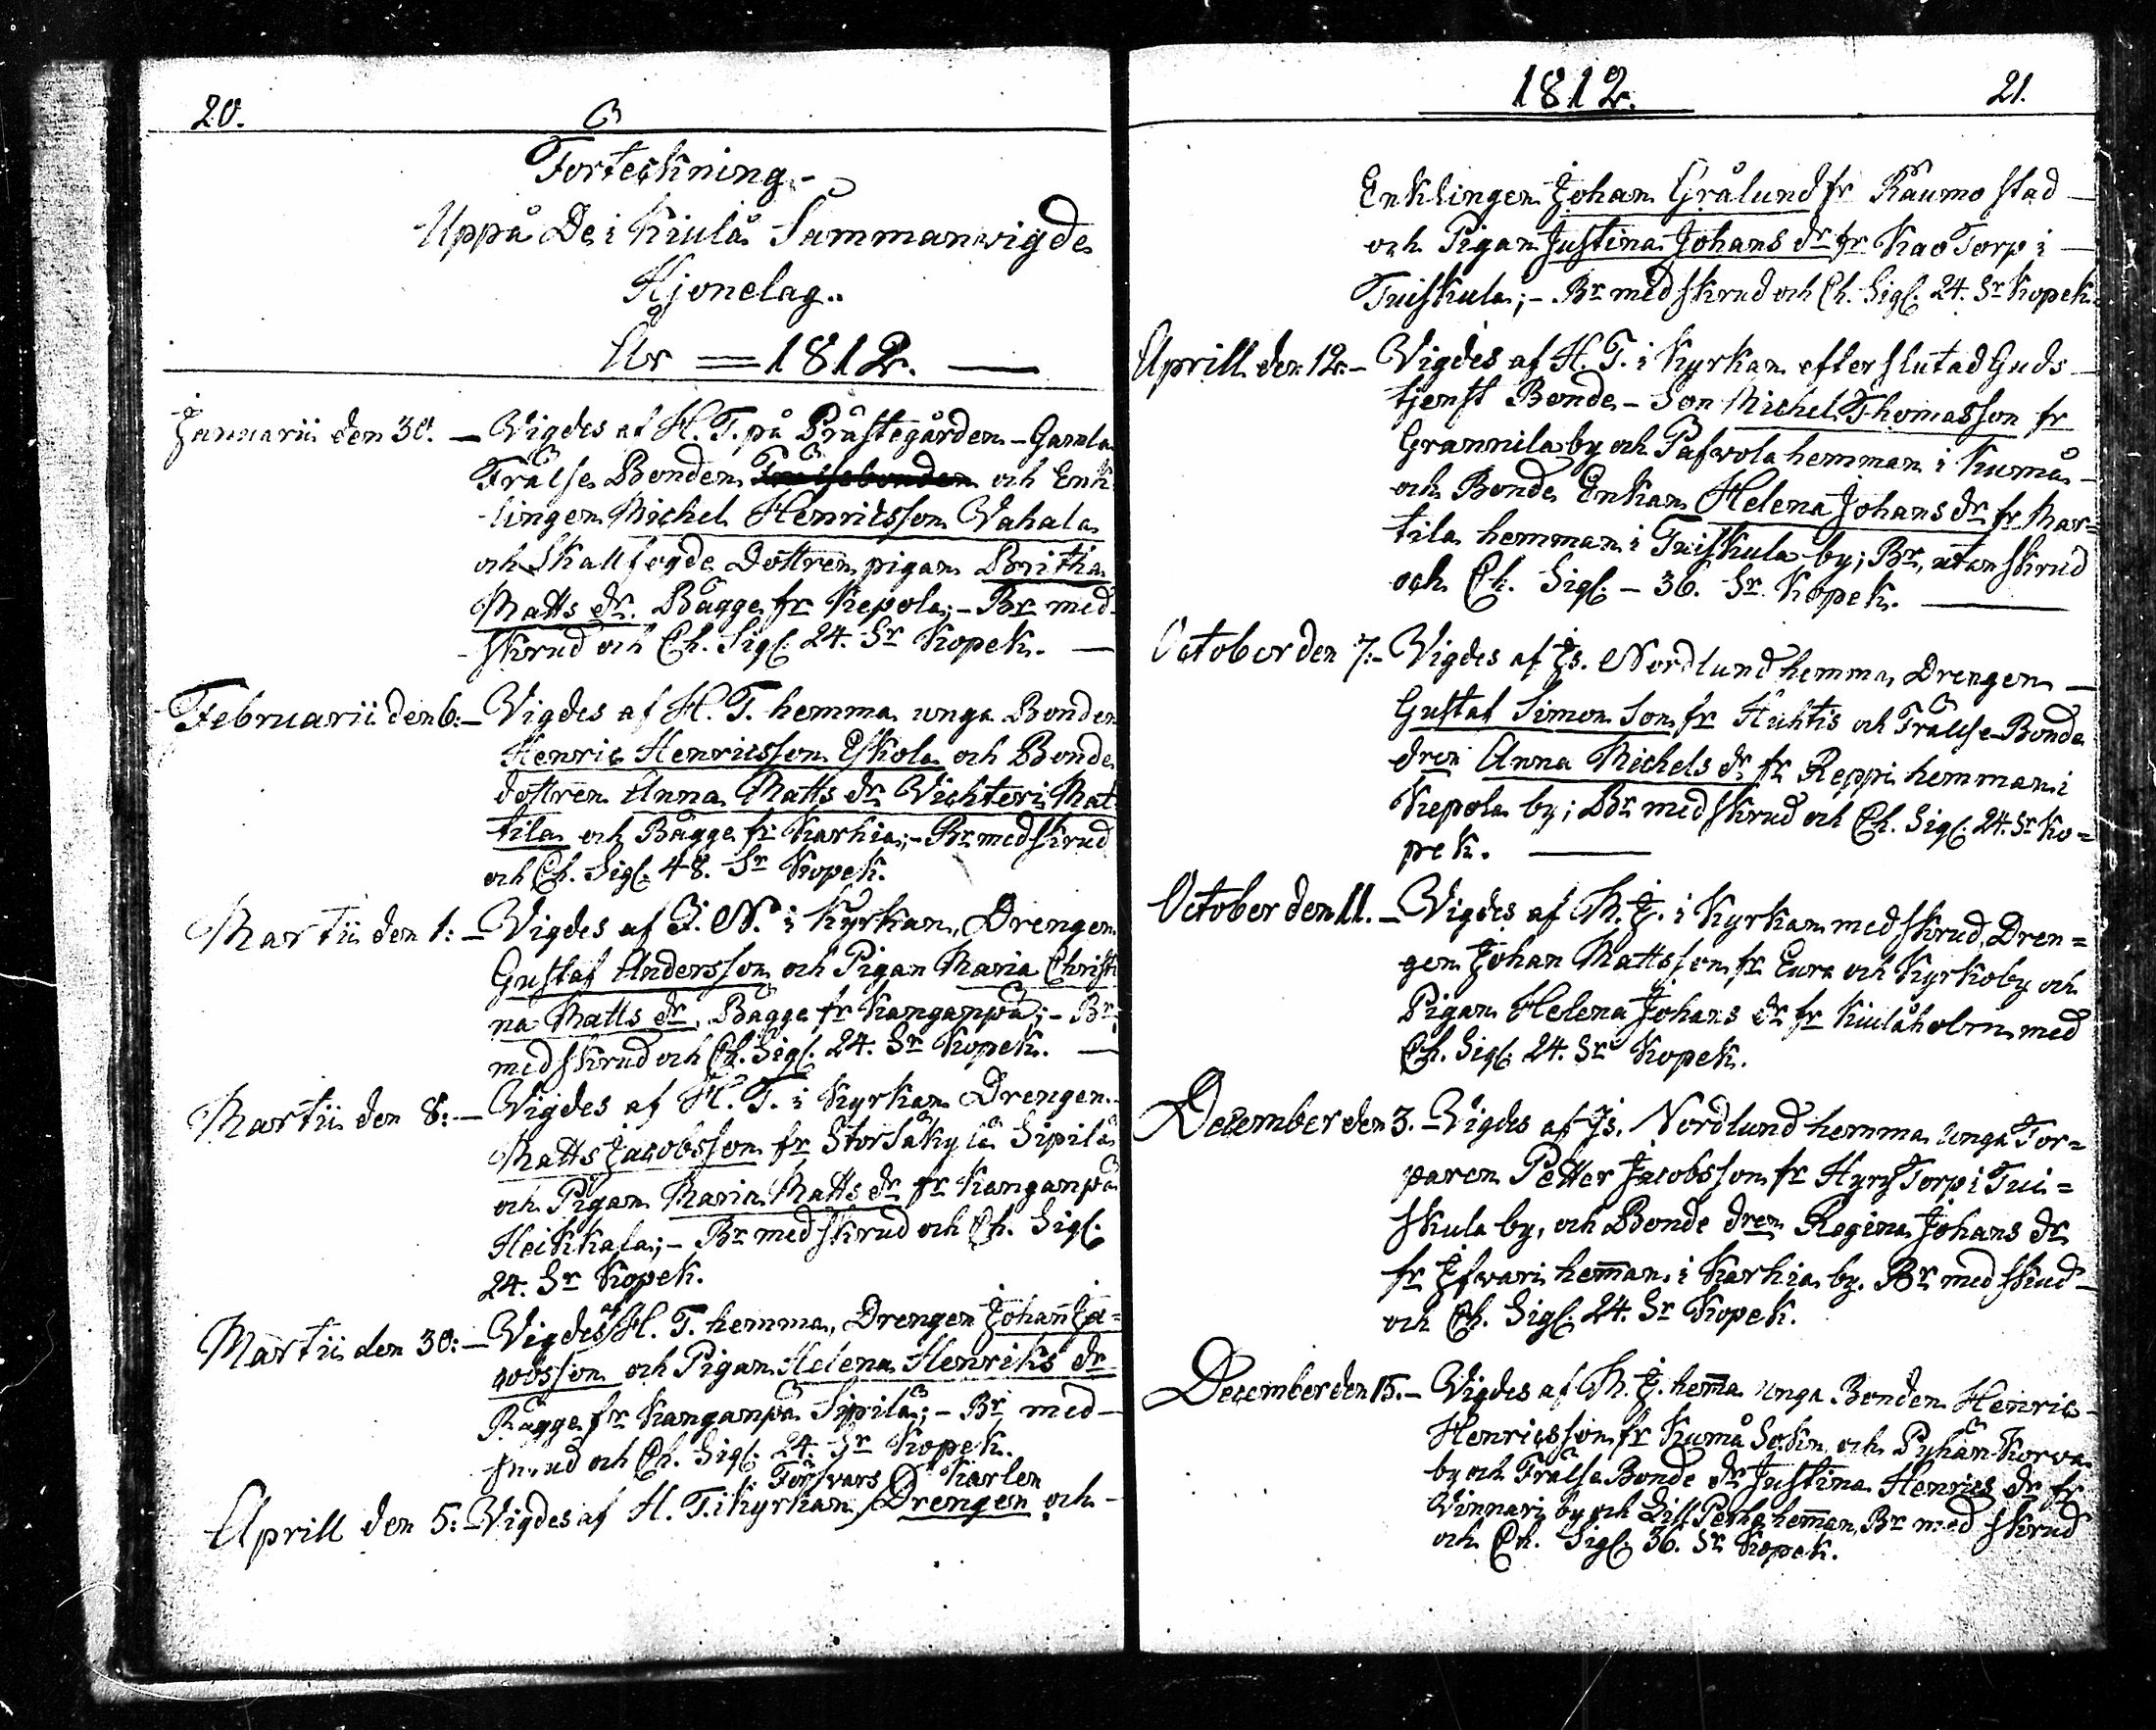 20.
Förteckning
Uppå De i Kiulå Sammanvigde
Hjonelag.
År = 1812. —
Januarii den 30. — Vigdes af H. T. på Prästegården - Gamla
Frälse Bonden Frälsebonden och Enk-
lingen Michel Henricsson Vahala
och Skallfogde Dottren pigan Britha
Matts dr. Bägge fr Kepola; - Br med
skrud och Ch. Sigl. 24. Sr Kopek. —
Februarii den 6: — Vigdes af H. T. hemma unga Bonden
Henric Henricsson Eskola och Bonde
dottren Anna Matts dr Vichteri Mat
tila och Bägge fr Karhia; - Br med skrud
och Ch. Sigl. 48. Sr Kopek.
Martii den 1: — Vigdes af J. N. i Kyrkan, Drengen
Gustaf Andersson och Pigan Maria Christi
na Matts dr, Bägge fr Kanganpä; - Br
med skrud och Ch. Sigl. 24. Sr Kopek. —
Martii den 8: — Vigdes af H. T. i Kyrkan Drengen
Matts Jacobsson fr Storsäkylä Sipilä
och Pigan Maria Matts dr fr Kanganpä
Heikkala; - Br med skrud och Ch. Sigl.
24. Sr Kopek.
Martii den 30: — Vigdes af H. T. hemma, Drengen Johan Ja-
cobsson och Pigan Helena Henriks dr
Bägge fr Kanganpä Sipilä; - Br med —
skrud och Ch. Sigl. 24. Sr Kopek.
Försvars Karlen
Aprill den 5: — Vigdes af H. T. i Kyrkan Drengen och —
1812. 21.
Enklingen Johan Grålund fr Raumo stad —
och Pigan Justina Johans dr fr Kao Torp i —
Tuiskula; - Br med skrud och Ch. Sigl. 24. Sr Kopek
Aprill den 12: — Vigdes af H. T. i Kyrkan efter slutad Guds —
tjenst Bonde - Son Michel Thomasson fr
Grannila by och Päfvola hemman i Kumå —
och Bonde Enkan Helena Johans dr fr Mar=
tila hemman i Tuiskula by; Br, utan skrud
och Ch. Sigl. — 36. Sr Kopek. —
October den 7: — Vigdes af Js. Nordlund hemma, Drengen —
Gustaf Simon Son fr Huhtis och Frälse Bonde
dren Anna Michels dr fr Reppi hemman i
Kepola by; Br med skrud och Ch. Sigl. 24. Sr Ko=
pek. —
October den 11. — Vigdes af M. J. i Kyrkan med skrud, Dren=
gen Johan Mattsson fr Eura och Kyrkoby och
Pigan Helena Johans dr fr Kiulåholm med
Ch. Sigl. 24. Sr Kopek.
December den 3. — Vigdes af Js. Nordlund hemma unga Tor=
paren Petter Jacobsson fr Hyry Torp i Tui=
skula by, och Bonde dren Regina Johans dr
fr Jfvari hem̄an i Karhia by. Br med skrud —
och Ch. Sigl. 24. Sr Kopek.
December den 15. — Vigdes af M. J. hem̄a unga Bonden Henric
Henricsson fr Kumå Sokn och Pyhän Korva
by och Frälse Bonde dr Justina Henrics dr fr
Vinnari by och Lill Perhe hem̄an, Br med skrud
och Ch. Sigl. 36. Sr Kopek.